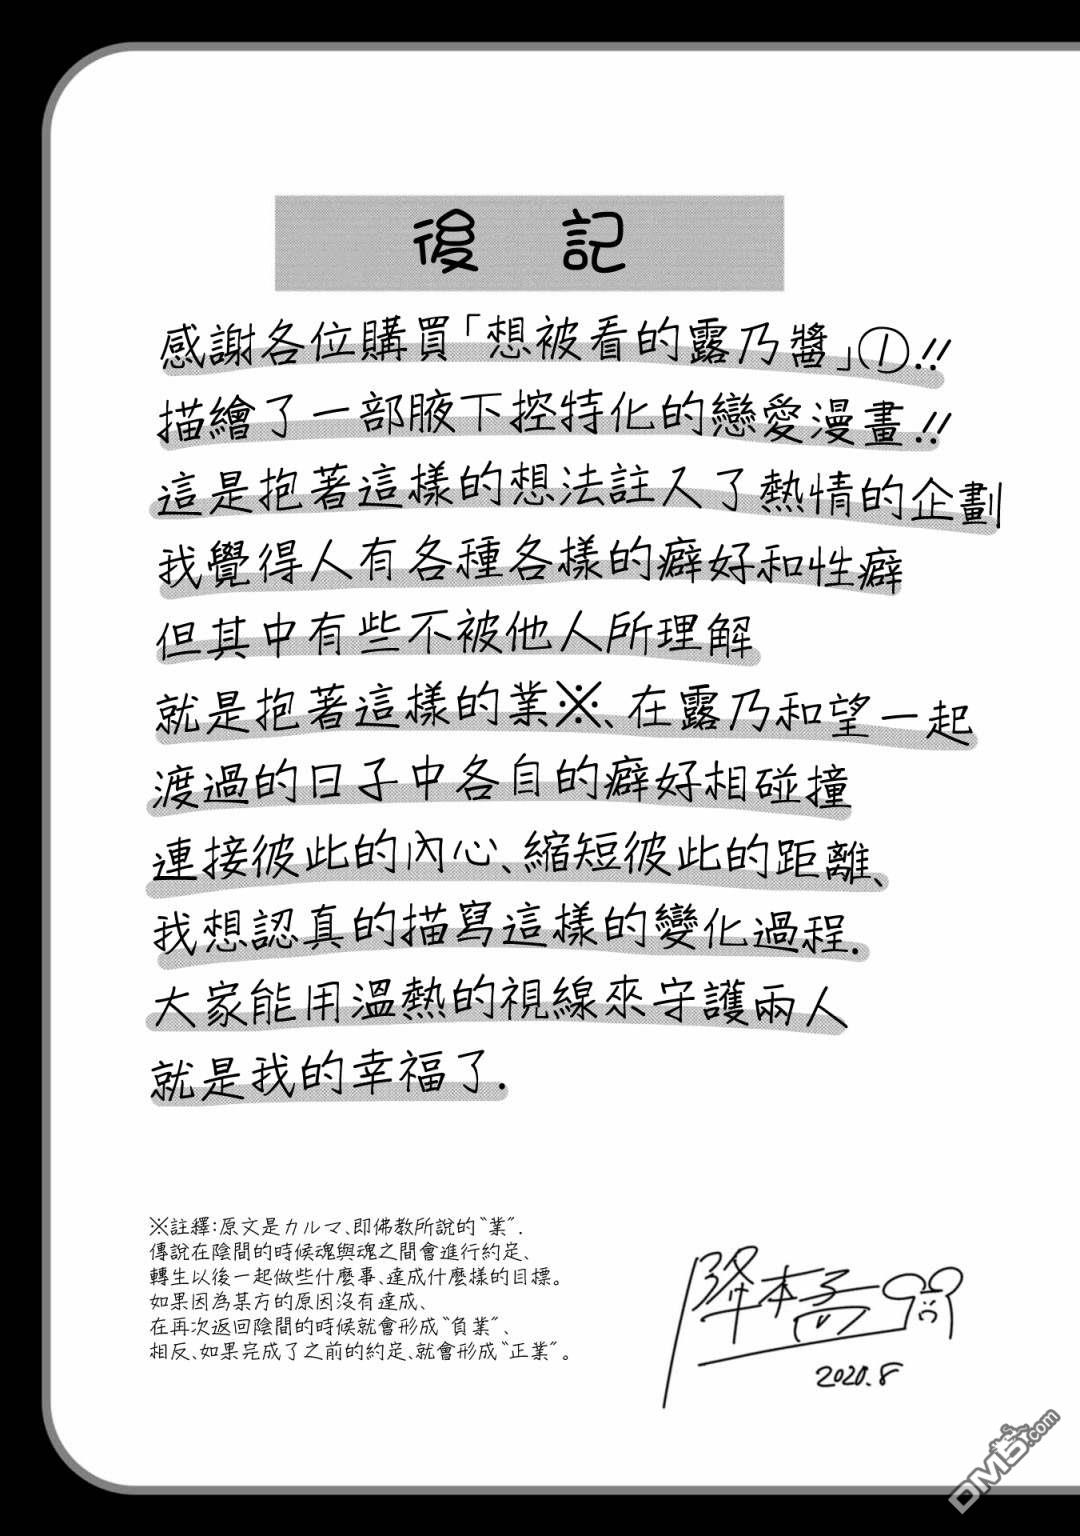 後記
感謝各位購買「想被看的露乃醬」①!!
描繪了一部腋下控特化的戀愛漫畫!!
這是抱著這樣的想法註入了熱情的企劃
我覺得人有各種各樣的癖好和性癖
但其中有些不被他人所理解
就是抱著這樣的業※、在露乃和望一起
渡過的日子中各自的癖好相碰撞
連接彼此的內心、縮短彼此的距離、
我想認真的描寫這樣的變化過程.
大家能用溫熱的視線來守護兩人
就是我的幸福了.
※註釋:原文是カルマ、即佛教所說的"業".
傳說在陰間的時候魂與魂之間會進行約定、
轉生以後一起做些什麼事、達成什麼樣的目標。
如果因為某方的原因沒有達成、
在再次返回陰間的時候就會形成"負業"、
相反、如果完成了之前的約定、就會形成"正業"。
降本孟
2020.8
DM5.com